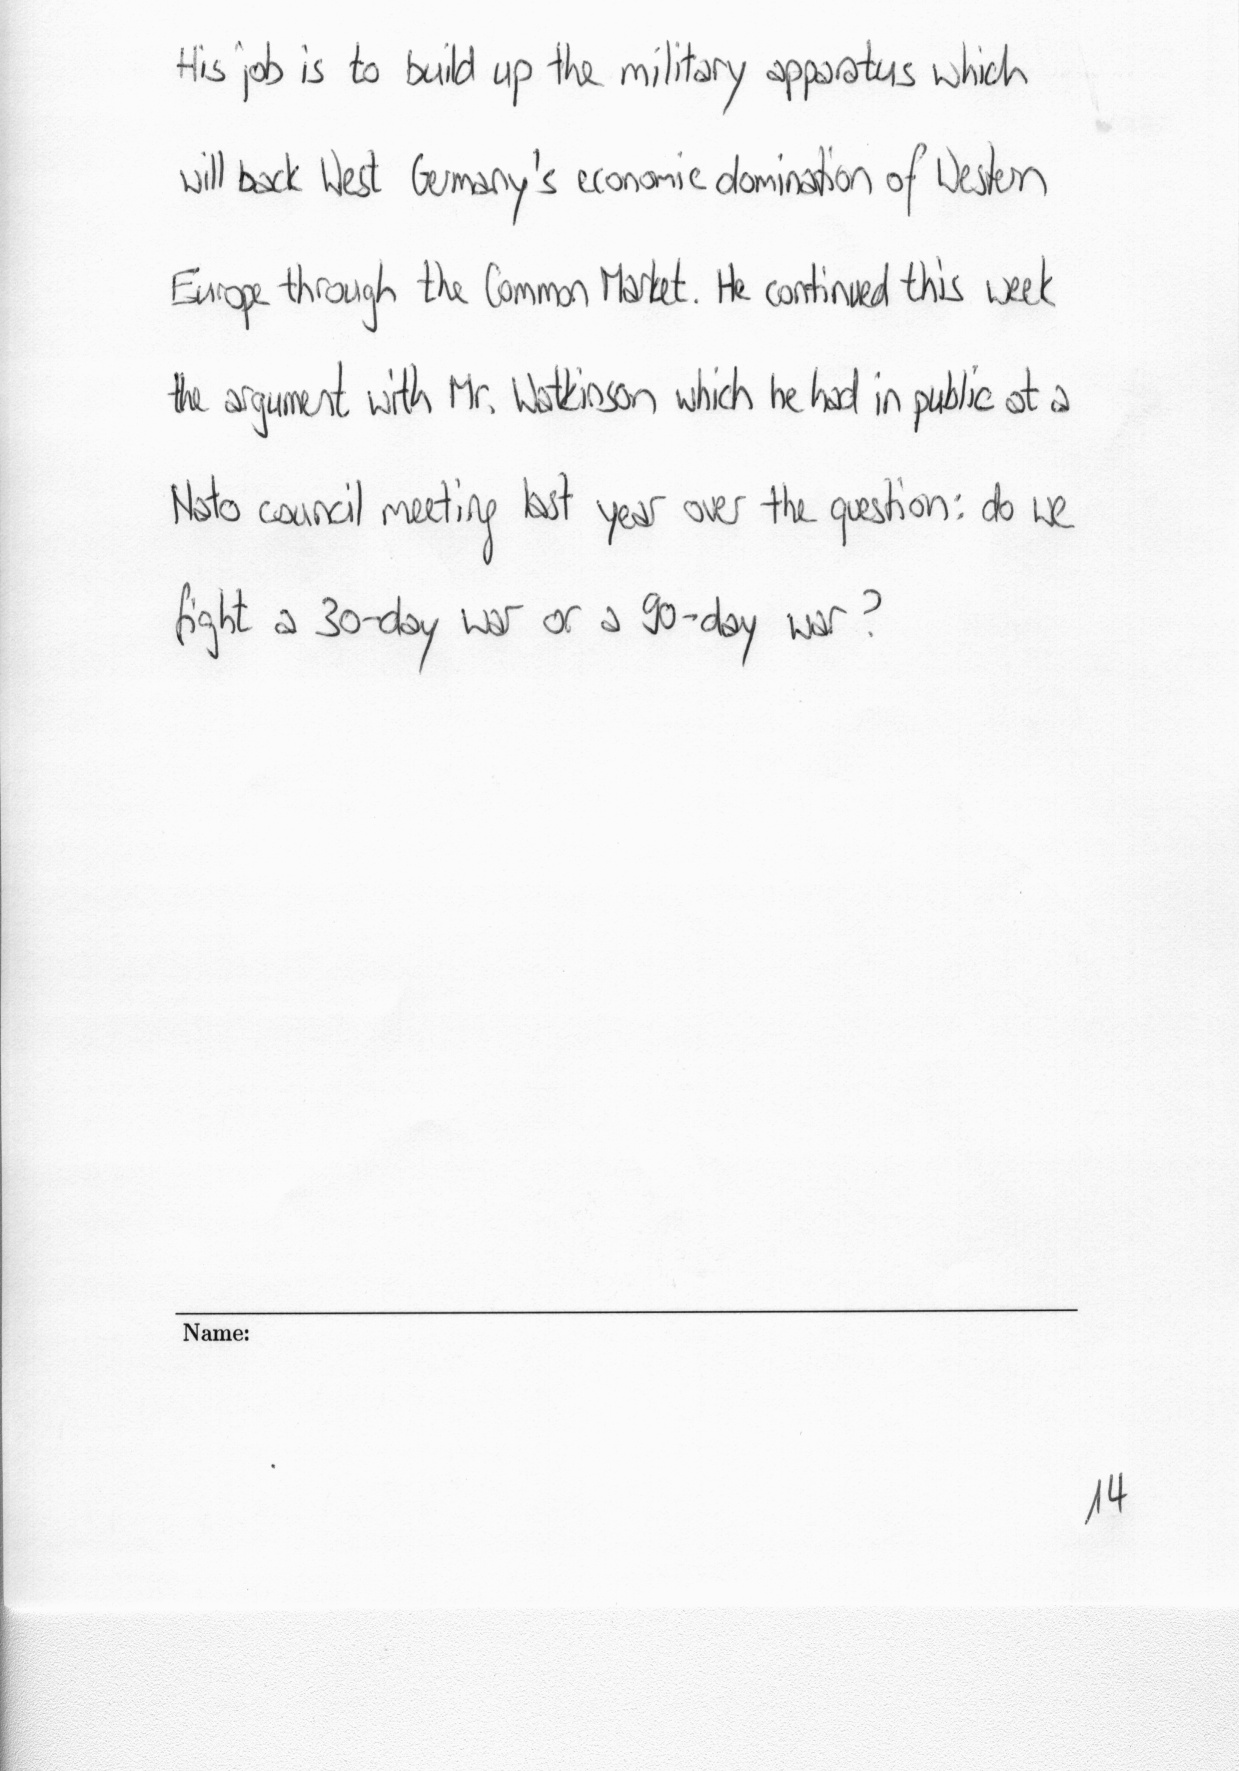 His job is to build up the military apparatus which
will back West Germany's economic domination of Western
Europe through the Common Market. He continued this week
the argument with Mr. Watkinson which he had in public at a
Nato council meeting last year over the question: do we
fight a 30-day war or a 90-day war?
Name:
14